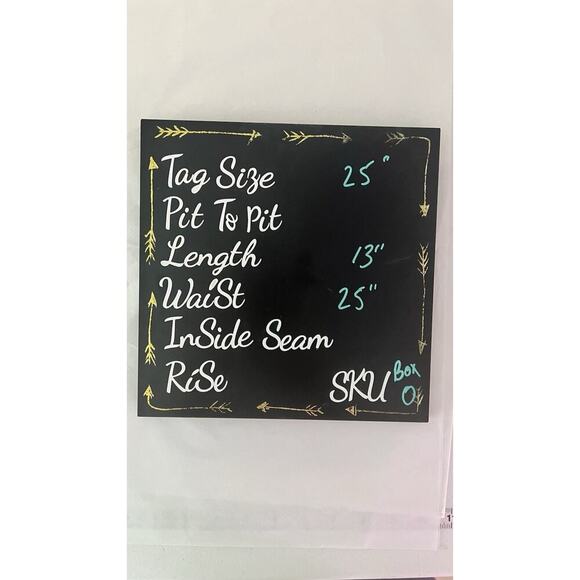 Tag Size 25"
Pit To Pit
Length 13"
WaiSt 25"
InSide Seam
RiSe
SKU Box O